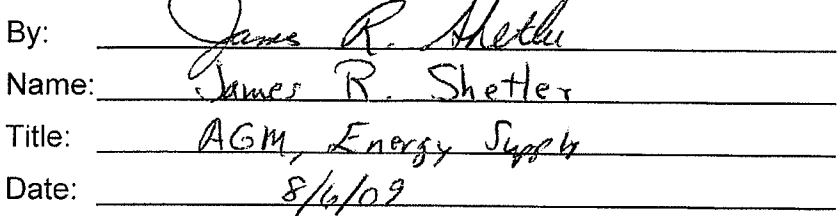 By: James R. Shetler
Name: James R. Shetler
Title: AGM, Energy Supply
Date: 8/6/09